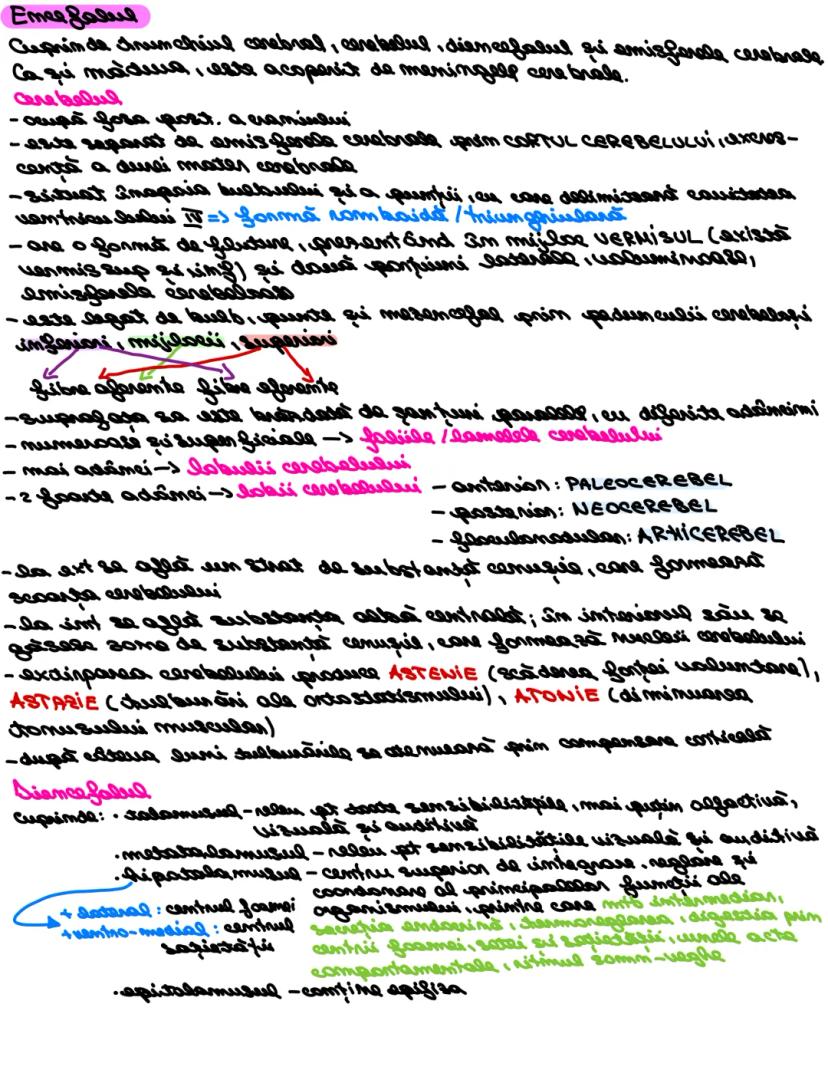 Encefalul
Cuprinde trunchiul cerebral, cerebelul, diencefalul și emisferele cerebrale
Ca și măduva, este acoperit de meningele cerebrale.
Cerebelul
- ocupă fosa post. a craniului
- este separat de emisferele cerebrale prin CORTUL CEREBELULUI, excres-
cență a durei mater cerebrale
- situat înapoia bulbului și a punții, cu care delimitează cavitatea
ventriculului IV => formă romboidă / triunghiulară
- are o formă de fluture, prezentând în mijloc VERMISUL (există
vermis sup și inf) și două porțiuni laterale, voluminoase,
emisferele cerebeloase
- este legat de bulb, punte și mezencefal prin pedunculii cerebeloși
inferiori, mijlocii, superiori
fibre aferente fibre eferente
- suprafața sa este brăzdată de șanțuri paralele, cu diferite adâncimi
- numeroase și superficiale -> foliile / lamelele cerebelului
- mai adânci -> lobulii cerebelului
- 2 foarte adânci -> lobii cerebelului - anterior: PALEOCEREBEL
- posterior: NEOCEREBEL
- floculonodular: ARHICEREBEL
- la ext se află un strat de substanță cenușie, care formează
scoarța cerebelului
- la int se află substanța albă centrală; în interiorul său se
găsesc zone de substanță cenușie, care formează nucleii cerebelului
- extirparea cerebelului produce ASTENIE (scăderea forței voluntare),
ASTAZIE (tulburări ale ortostatismului), ATONIE (diminuarea
tonusului muscular)
- după câteva luni tulburările se atenuează prin compensare corticală
Diencefalul
cuprinde: • talamusul - releu pt toate sensibilitățile, mai puțin olfactivă,
vizuală și auditivă
• metatalamusul - releu pt sensibilitățile vizuală și auditivă
• hipotalamusul - centru superior de integrare, reglare și
coordonare al principalelor funcții ale
+ lateral: centrul foamei organismului, printre care mtb intermediar,
+ ventro-medial: centrul secreția endocrină, termoreglarea, digestia prin
sațietății centrii foamei, setei și sațietății, unele acte
comportamentale, ritmul somn-veghe
• epitalamusul - conține epifiza